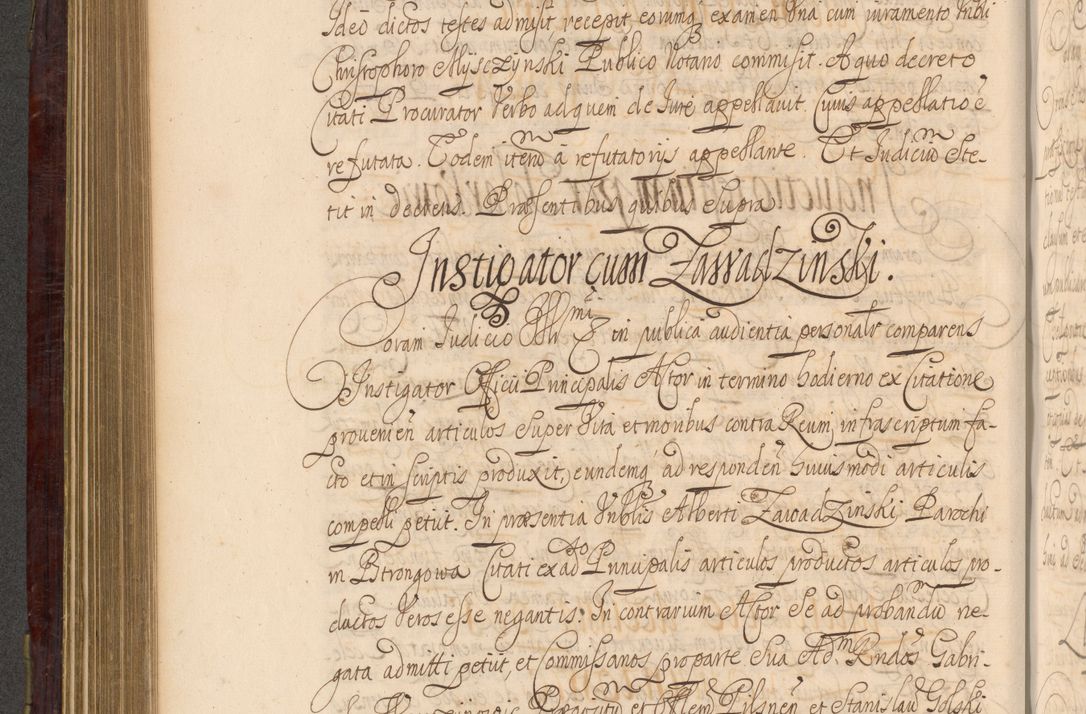 Ideo dictos testes admisit recepit eorumq examen Una cum iuramento Vnbli
Christophoro Mysczynski Publico Notario commisit. A quo decreto
Citati Procurator Verbo ad quem de Iure appellauit. Cuius appellatio e
refutata. Eodem itm a refutatorijs appellante. Et Iudiciu Ste-
tit in decreto. Præsentibus quibus Supra
Instigator cum Zawadzinski.
Coram Iudicio in publica audientia personalr comparens
Instigator Officii Principalis Actor in termino hodierno ex Citatione
prouenien articulos Super Vita et moribus contra Reum infrascriptum fa-
cto et in scriptis produxit, eundemq ad responden huiusmodi articulis
compelli petiit. In præsentia Vnblis Alberti Zawadzinski Parochi
in Pstrongowa Citati ex ad Principalis articulos productos articulos pro-
ductos Veros esse negantis: In contrarium Actor Se ad probandu ne-
gata admitti petiit, et Commissarios pro parte Sua Adm Rndos Gabri-
Præpositu et Pilsnen et Stanislau Golski